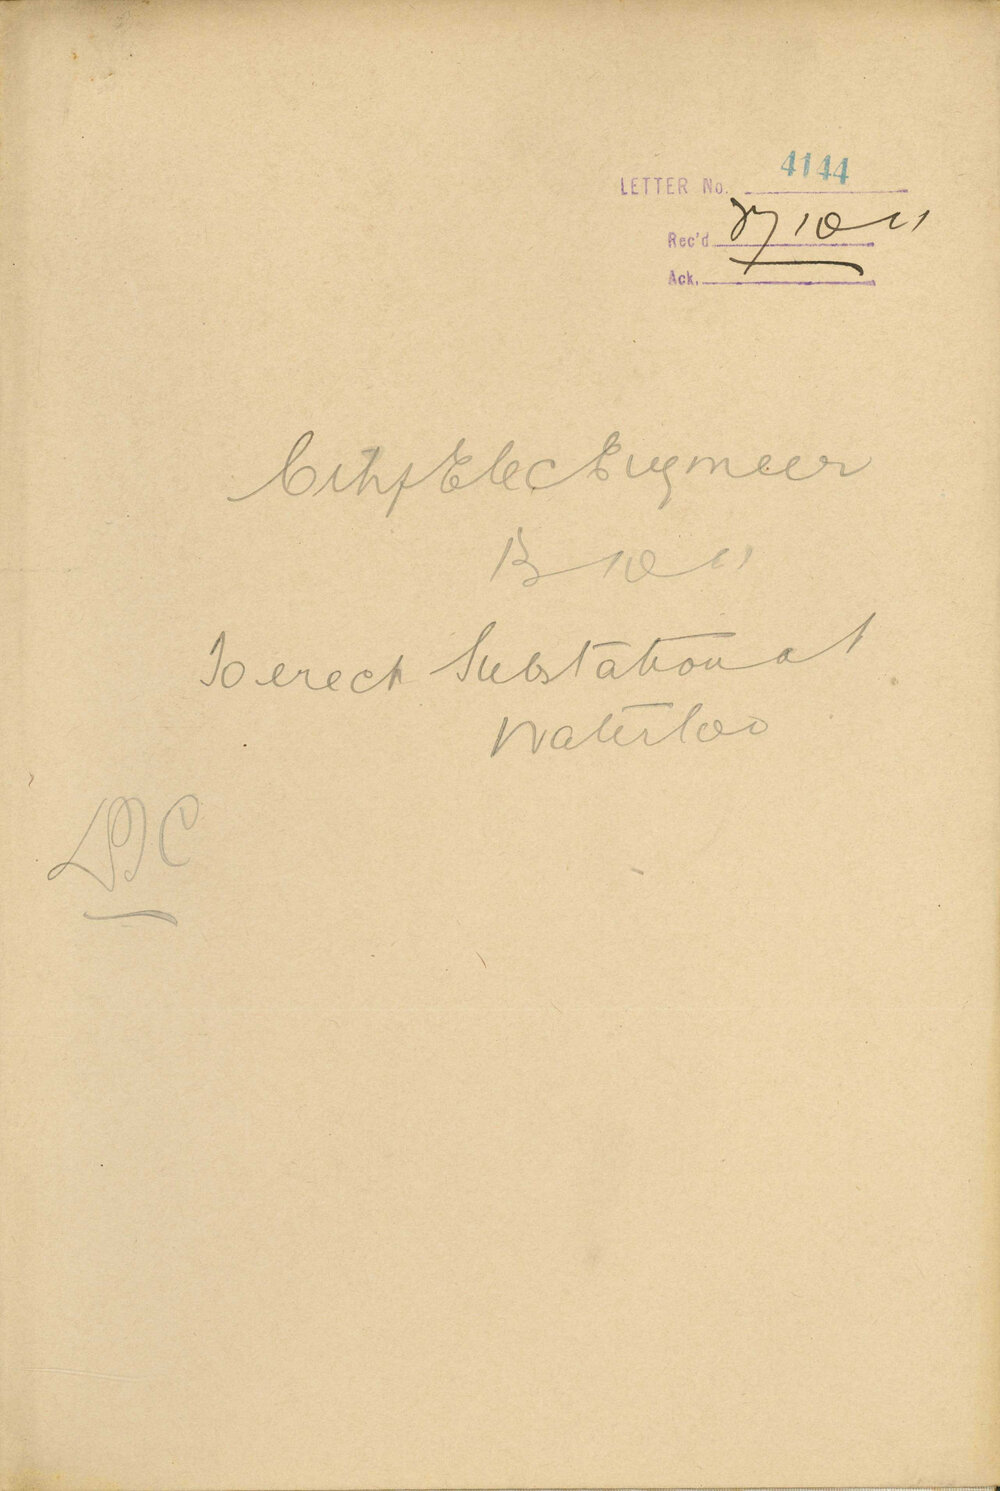 LETTER No. 4144
Rec'd 27-10-11
Ack.
City Elec Engineer
13-10-11
To erect Substation at
Waterloo